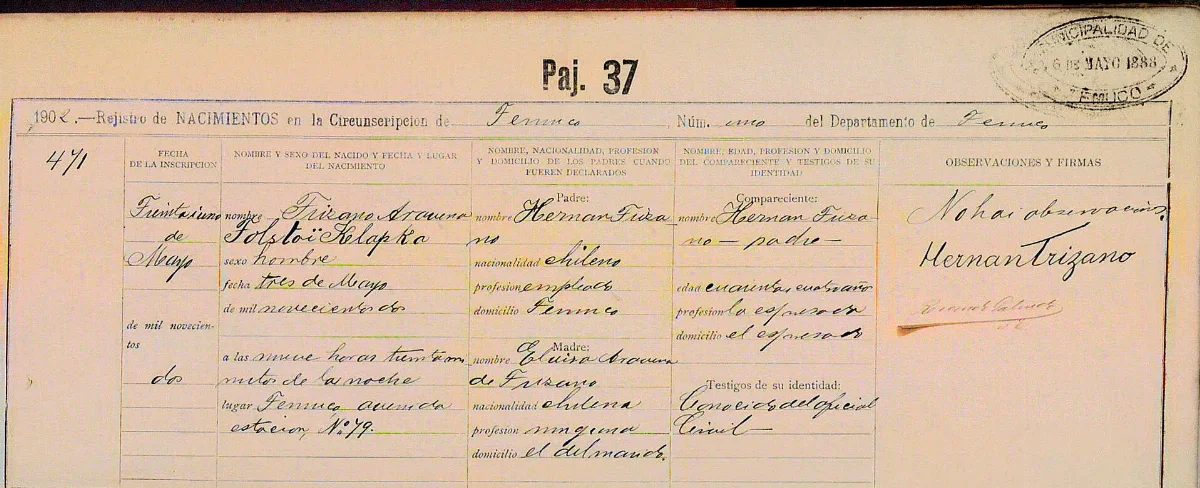 MUNICIPALIDAD DE
6 DE MAYO 1888
TEMUCO
Paj. 37
1902.—Rejistro de NACIMIENTOS en la Circunscripcion de Temuco, Núm. uno del Departamento de Temuco
471
FECHA
DE LA INSCRIPCION
NOMBRE Y SEXO DEL NACIDO Y FECHA Y LUGAR
DEL NACIMIENTO
NOMBRE, NACIONALIDAD, PROFESION
Y DOMICILIO DE LOS PADRES CUANDO
FUEREN DECLARADOS
NOMBRE, EDAD, PROFESION Y DOMICILIO
DEL COMPARECIENTE Y TESTIGOS DE SU
IDENTIDAD
OBSERVACIONES Y FIRMAS
Treintaiuno
de
Mayo
de mil novecien-
tos
dos
nombre Trizano Aravena
Tolstoï Kelapka
sexo hombre
fecha tres de Mayo
de mil novecientos dos
a las nueve horas treinta mi
nutos de la noche
lugar Temuco, avenida
estacion, No. 79.
Padre:
nombre Hernan Triza
no
nacionalidad chileno
profesion empleado
domicilio Temuco
Madre:
nombre Eluisa Aravena
de Trizano
nacionalidad chilena
profesion ninguna
domicilio el del marido.
Compareciente:
nombre Hernan Triza-
no — padre —
edad cuarenta i cuatro años
profesion la espresada
domicilio el espresado
Testigos de su identidad:
Conocido del oficial
Civil —
No hai observacion.
Hernan Trizano